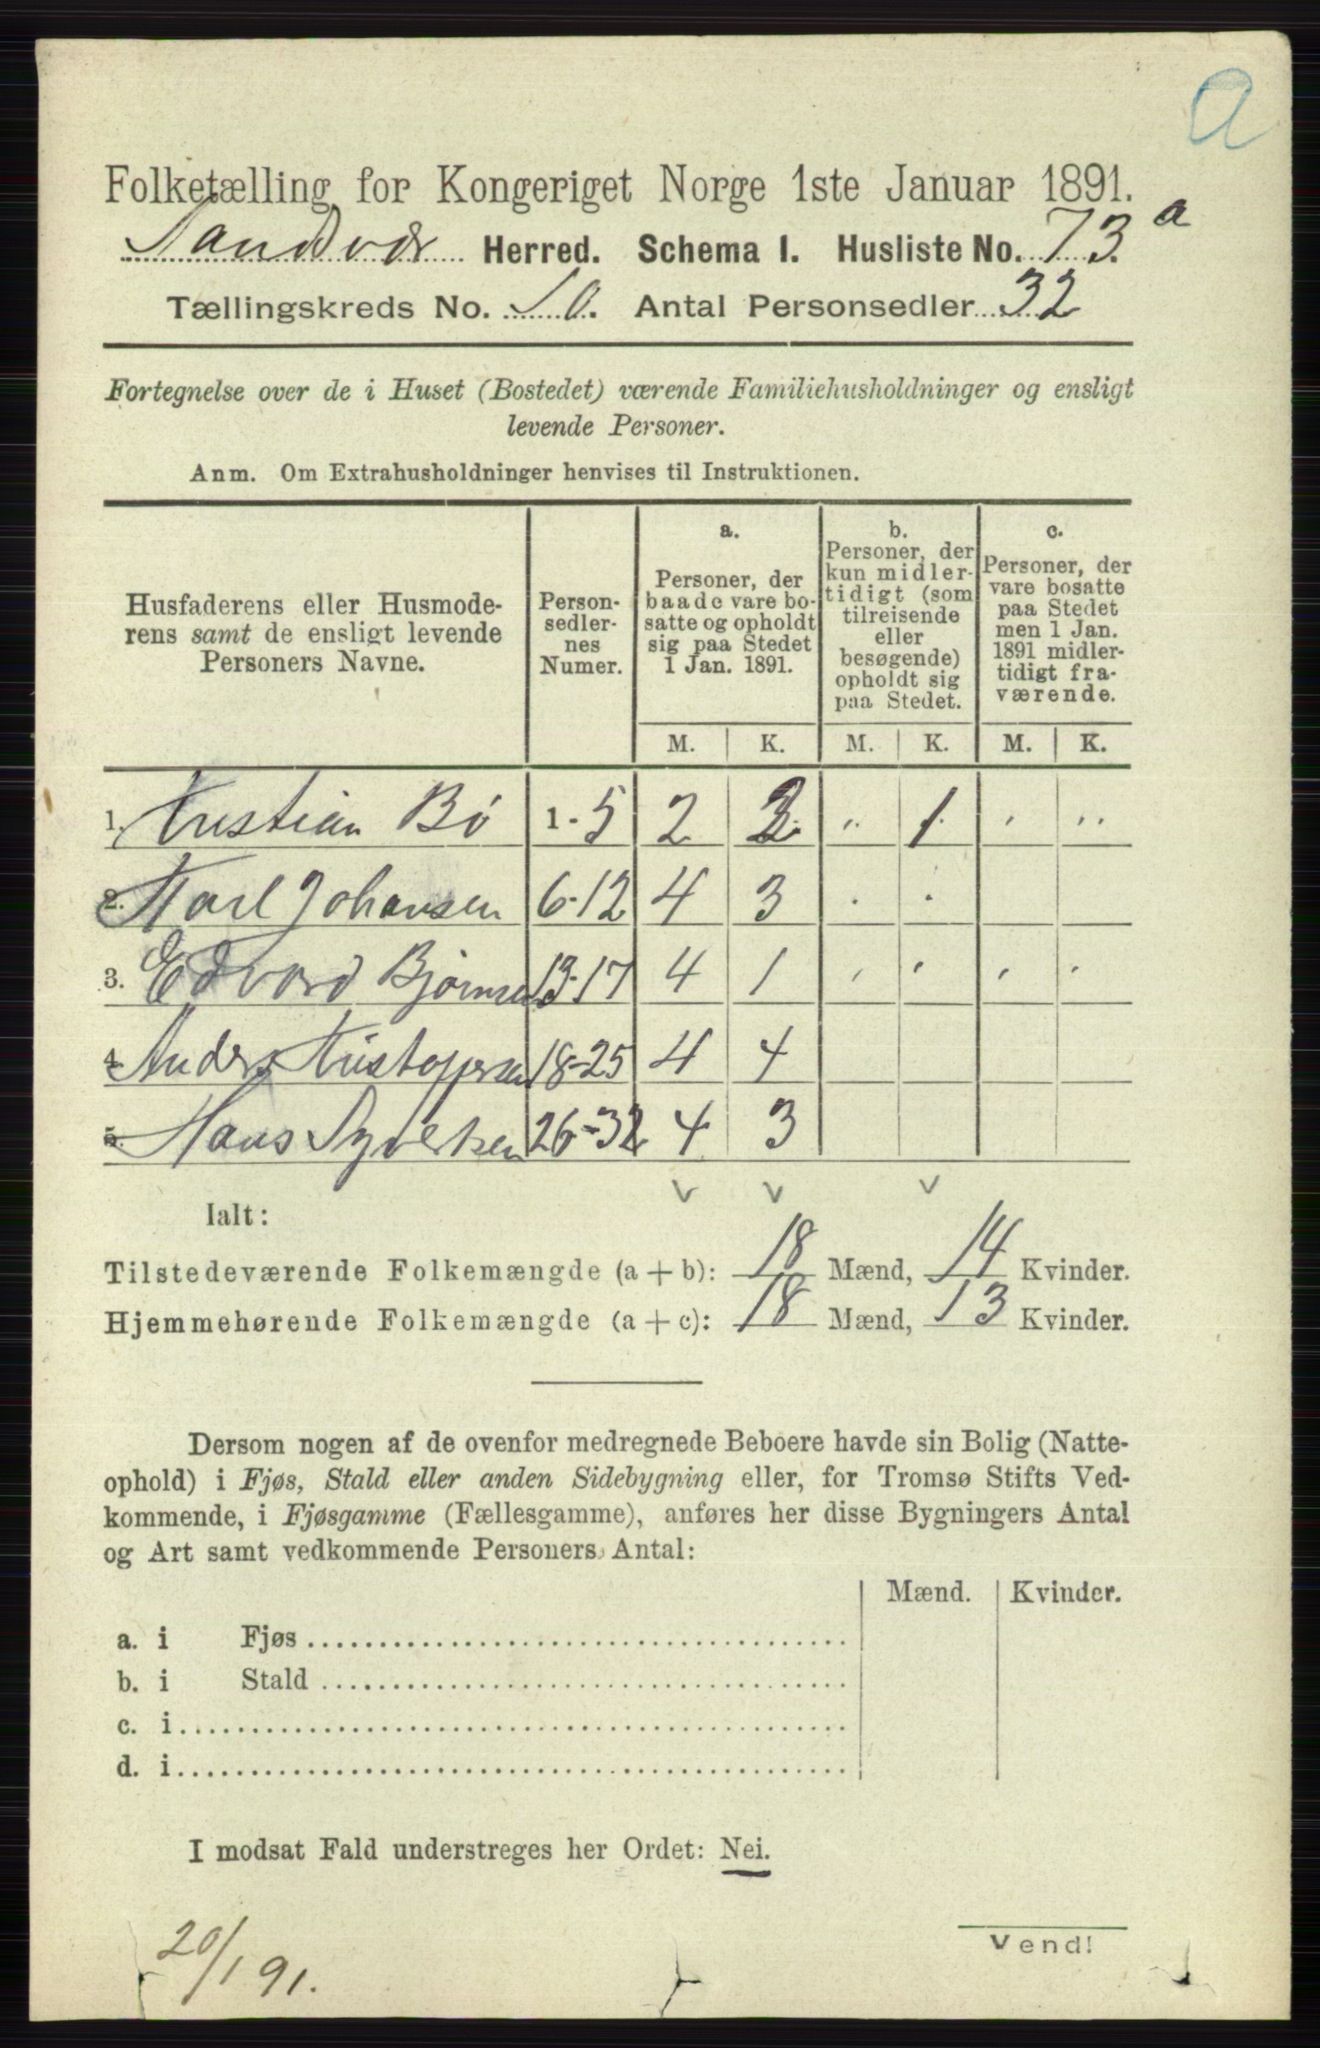 a
Folketælling for Kongeriget Norge 1ste Januar 1891.
Sandsvær Herred. Schema I. Husliste No. 73. a
Tællingskreds No. 10. Antal Personsedler 32
Fortegnelse over de i Huset (Bostedet) værende Familiehusholdninger og ensligt
levende Personer.
Anm. Om Extrahusholdninger henvises til Instruktionen.
Husfaderens eller Husmode-
rens samt de ensligt levende
Personers Navne.
Person-
sedler-
nes
Numer.
a.
Personer, der
baade vare bo-
satte og opholdt
sig paa Stedet
1 Jan. 1891.
b.
Personer, der
kun midler-
tidigt (som
tilreisende
eller
besøgende)
opholdt sig
paa Stedet.
c.
Personer, der
vare bosatte
paa Stedet
men 1 Jan.
1891 midler-
tidigt fra-
værende.
M. K. M. K. M. K.
1. Kristian Bø 1-5 2 2 " 1 " "
2. Karl Johansen 6-12 4 3
3. Edvard Bjørnsen 13-17 4 1
4. Anders Kristoffersen 18-25 4 4
5. Hans Syvertsen 26-32 4 3
v v v
Ialt:
Tilstedeværende Folkemængde (a + b): 18 Mænd, 14 Kvinder.
Hjemmehørende Folkemængde (a + c): 18 Mænd, 13 Kvinder.
Dersom nogen af de ovenfor medregnede Beboere havde sin Bolig (Natte-
ophold) i Fjøs, Stald eller anden Sidebygning eller, for Tromsø Stifts Ved-
kommende, i Fjøsgamme (Fællesgamme), anføres her disse Bygningers Antal
og Art samt vedkommende Personers Antal:
Mænd. Kvinder.
a. i Fjøs
b. i Stald
c. i
d. i
I modsat Fald understreges her Ordet: Nei.
20/1 91.
Vend!